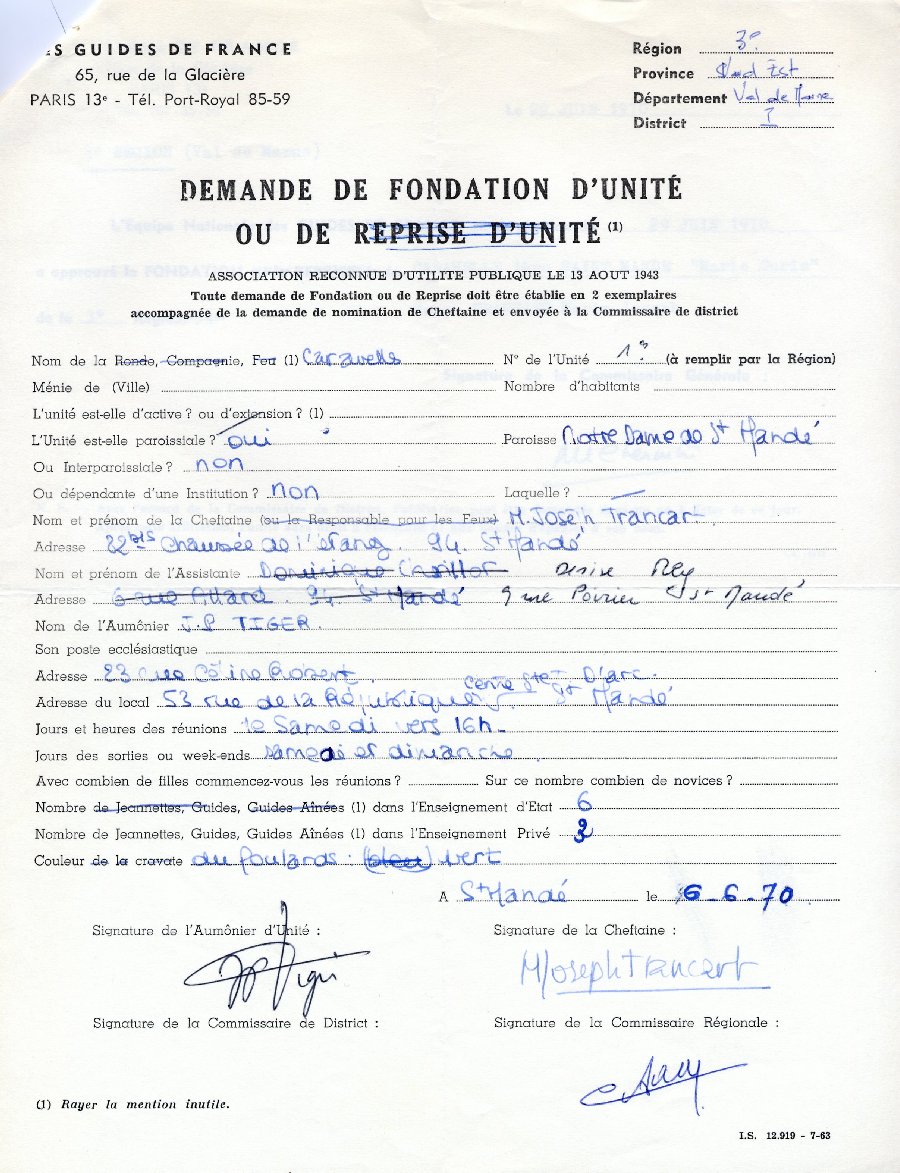 ES GUIDES DE FRANCE
65, rue de la Glacière
PARIS 13e - Tél. Port-Royal 85-59
Région 3e
Province Sud Est
Département Val de Marne
District I
DEMANDE DE FONDATION D'UNITÉ
OU DE REPRISE D'UNITÉ (1)
ASSOCIATION RECONNUE D'UTILITE PUBLIQUE LE 13 AOUT 1943
Toute demande de Fondation ou de Reprise doit être établie en 2 exemplaires
accompagnée de la demande de nomination de Cheftaine et envoyée à la Commissaire de district
Nom de la Ronde, Compagnie, Feu (1) Caravelle N° de l'Unité 1e (à remplir par la Région)
Ménie de (Ville) Nombre d'habitants
L'unité est-elle d'active ? ou d'extension ? (1)
L'Unité est-elle paroissiale ? oui Paroisse Notre Dame de St Mandé
Ou Interparoissiale ? non
Ou dépendante d'une Institution ? non Laquelle ? —
Nom et prénom de la Cheftaine (ou la Responsable pour les Feux) M. Jose'h Trancar
Adresse 22 bis Chaussée de l'étang. 94. St Mandé
Nom et prénom de l'Assistante Dominique Denise Rey
Adresse 6 rue Allard. 94. St Mandé 9 rue Poirier St Mandé
Nom de l'Aumônier J.P TIGER.
Son poste ecclésiastique
Adresse 23 rue Céline Robert.
Adresse du local 53 rue de la République. Centre Ste J. D'arc. St Mandé
Jours et heures des réunions le Samedi vers 16h.
Jours des sorties ou week-ends samedi et dimanche
Avec combien de filles commencez-vous les réunions ? Sur ce nombre combien de novices ?
Nombre de Jeannettes, Guides, Guides Aînées (1) dans l'Enseignement d'Etat 6
Nombre de Jeannettes, Guides, Guides Aînées (1) dans l'Enseignement Privé 2
Couleur de la cravate du foulards : (bleu) vert
A St Mandé le 6-6-70
Signature de l'Aumônier d'Unité :
Signature de la Cheftaine :
MJoseph Trancart
Signature de la Commissaire de District :
Signature de la Commissaire Régionale :
(1) Rayer la mention inutile.
I.S. 12.919 - 7-63